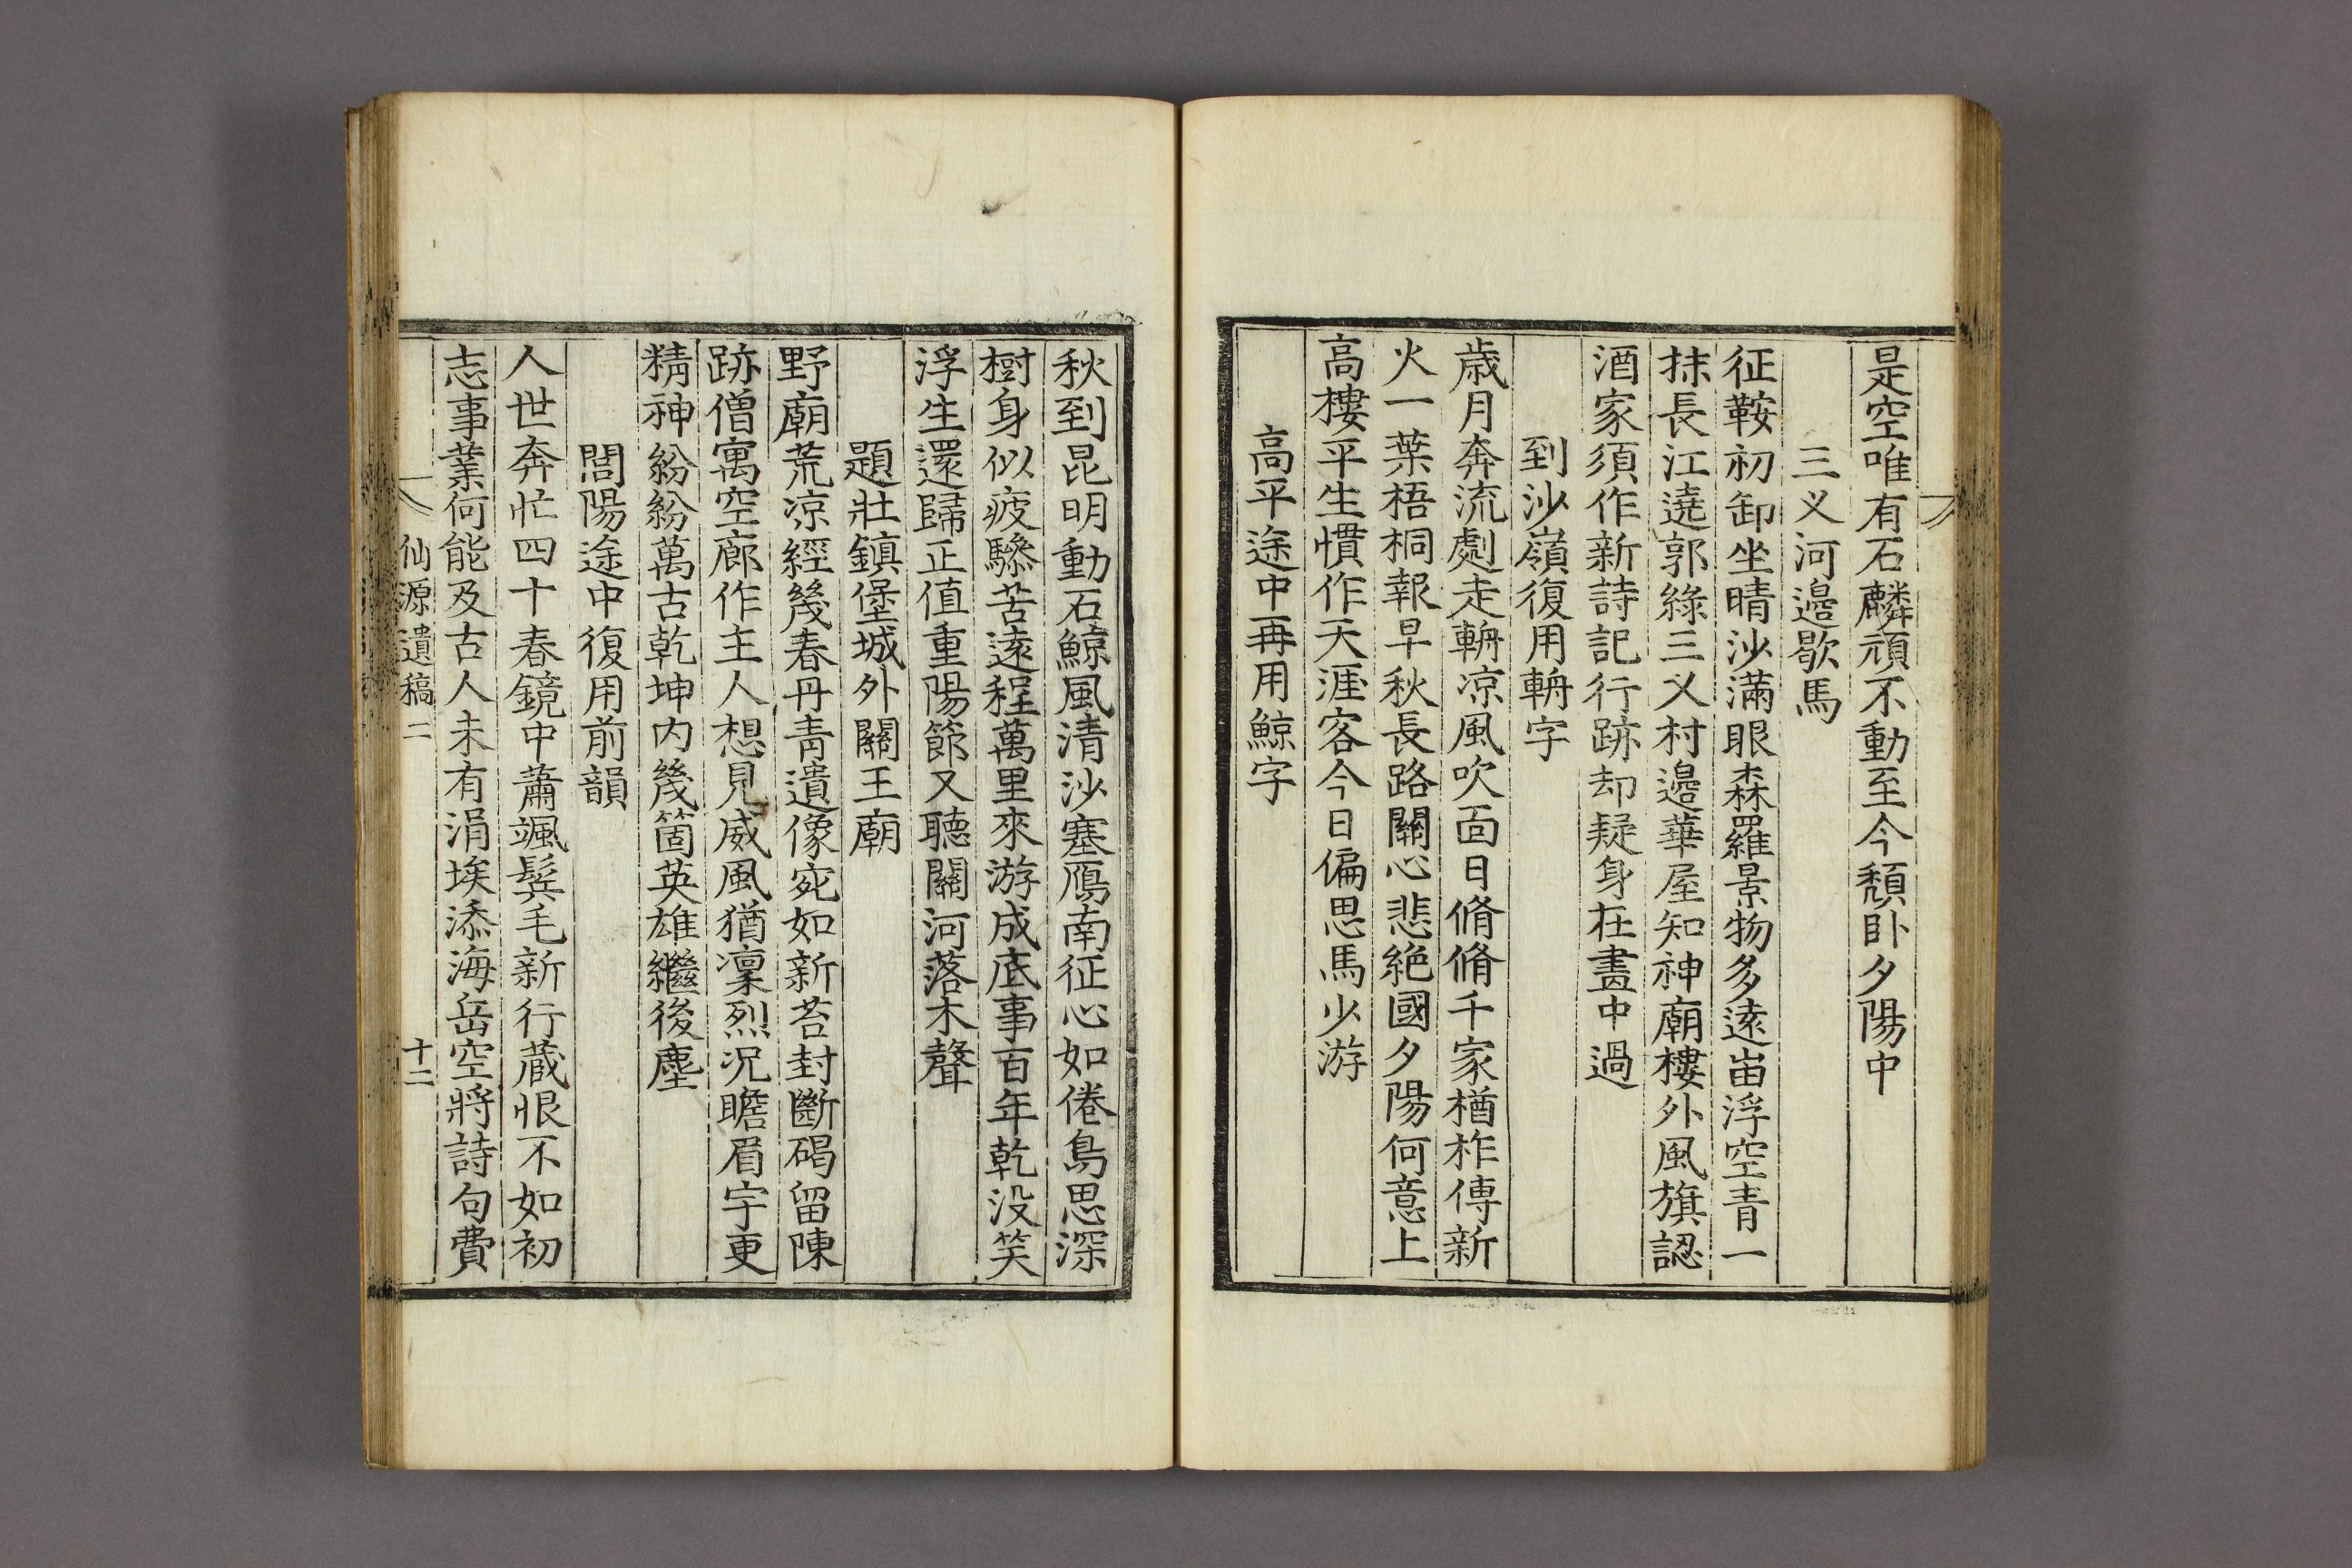 是空唯有石麟頑不動至今頹卧夕陽中
三乂河邊歇馬
征鞍初卸坐晴沙滿眼森羅景物多遠峀浮空青一
抹長江遶郭綠三乂村邊華屋知神廟樓外風旗認
酒家須作新詩記行跡却疑身在畫中過
到沙嶺復用輈字
歲月奔流劇走輈凉風吹面日脩脩千家楢柞傳新
火一葉梧桐報早秋長路關心悲絶國夕陽何意上
高樓平生慣作天涯客今日偏思馬少游
高平途中再用鯨字
秋到昆明動石鯨風清沙塞鴈南征心如倦鳥思深
樹身似疲驂苦遠程萬里來游成底事百年乾没笑
浮生還歸正值重陽節又聽關河落木聲
題壯鎮堡城外關王廟
野廟荒凉經幾春丹青遺像宛如新苔封斷碣留陳
跡僧寓空廊作主人想見威風猶凜烈况瞻眉宇更
精神紛紛萬古乾坤内幾箇英雄繼後塵
閭陽途中復用前韻
人世奔忙四十春鏡中蕭颯鬂毛新行蔵恨不如初
志事業何能及古人未有涓埃添海岳空將詩句費
仙源遺稿二 十二